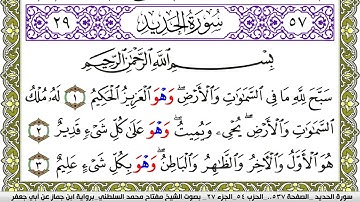 ٢٩ سُورَةُ الْحَدِيدِ ٥٧
بِسْمِ اللَّهِ الرَّحْمَٰنِ الرَّحِيمِ
سَبَّحَ لِلَّهِ مَا فِي السَّمَٰوَٰتِ وَالْأَرْضِ ۖ وَهْوَ الْعَزِيزُ الْحَكِيمُ ١ لَهُۥ مُلْكُ
السَّمَٰوَٰتِ وَالْأَرْضِ ۖ يُحْيِۦ وَيُمِيتُ ۖ وَهْوَ عَلَىٰ كُلِّ شَيْءٍ قَدِيرٌ ٢
هُوَ الْأَوَّلُ وَالْآخِرُ وَالظَّٰهِرُ وَالْبَاطِنُ ۖ وَهْوَ بِكُلِّ شَيْءٍ عَلِيمٌ ٣
سورة الحديد _ الصفحة ٥٣٧ .. الحزب ٥٤ الجزء ٢٧ _ بصوت الشيخ مفتاح محمد السلطني _ برواية ابن جماز عن أبي جعفر